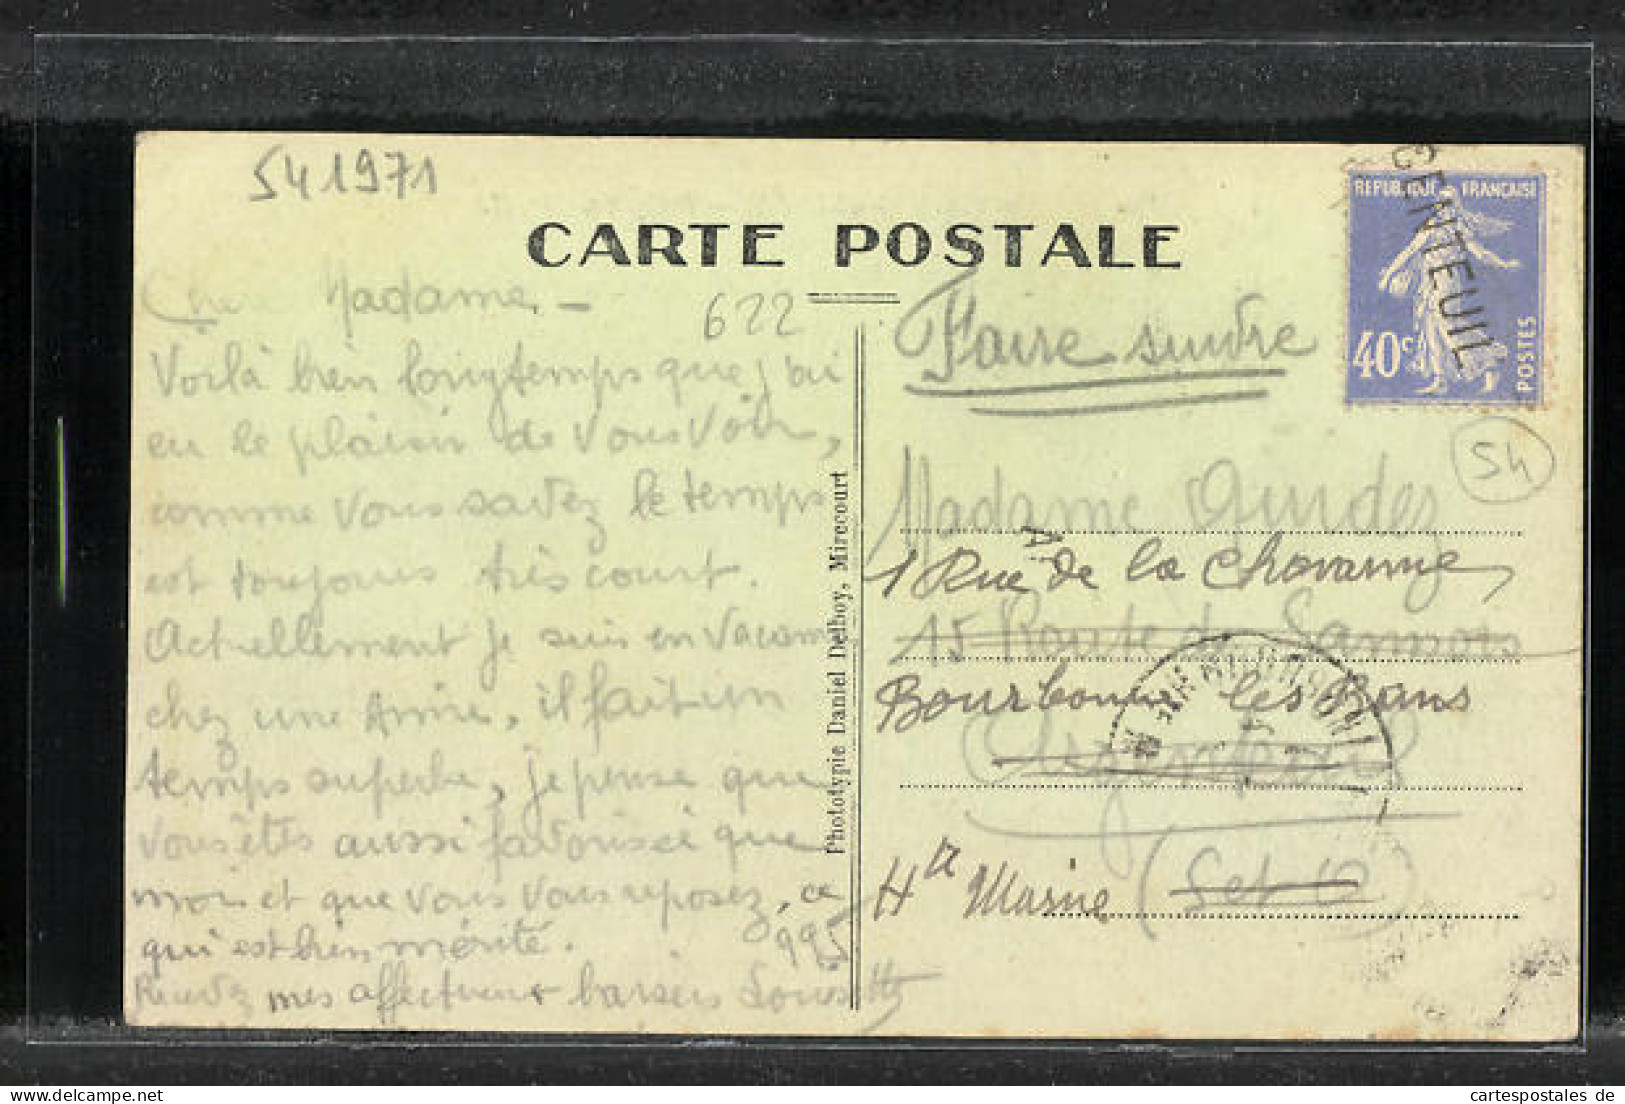 541971
CARTE POSTALE
GENTEUIL
REPUBLIQUE FRANÇAISE
40c
POSTES
622
Faire suivre
54
Madame
1 Rue de la Chavanne,
15 Route de Sannois
Bourbonne les Bains
Argenteuil
Hte Marne (S et O)
Phototypie Daniel Delboy, Mirecourt
Madame, -
Voilà bien longtemps que j'ai
eu le plaisir de vous voir,
comme vous savez le temps
est toujours très court.
Actuellement je suis en vacances
chez une Amie, il fait un
temps superbe, je pense que
vous êtes aussi favorisée que
moi et que vous vous reposez, ce
qui est bien mérité.
Recevez mes affectueux baisers
995
cartespostales de